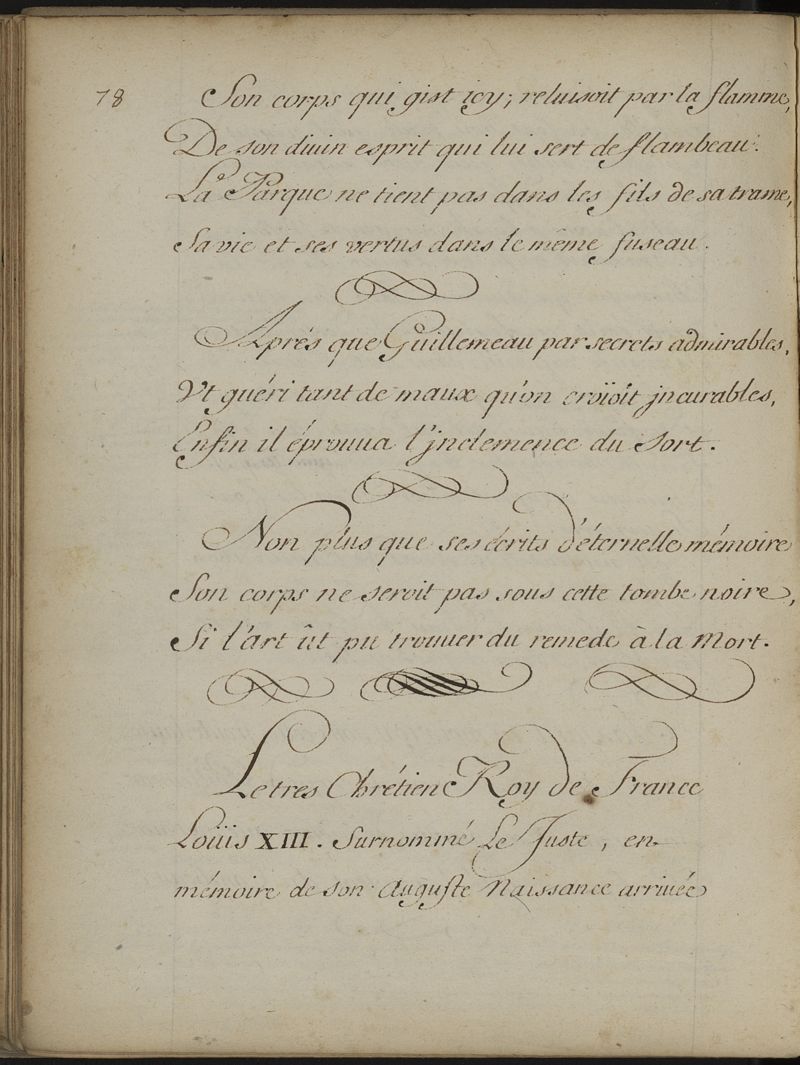 78
Son corps qui gist icy; reluisoit par la flamme,
De son diuin esprit qui lui sert de flambeau.
La Parque ne tient pas dans les fils de sa trame,
Sa vie et ses vertus dans le même fuseau.
Aprés que Guillemeau par secrets admirables,
Vt guéri tant de maux qu'on croïoit jncurables,
Enfin il éprouua l'jnclemence du Sort.
Non plus que ses écrits d'éternelle mémoire
Son corps ne seroit pas sous cette tombe noire,
Si l'art ût pu trouuer du remede à la Mort.
Le tres Chrétien Roy de France
Loüis XIII. Surnommé Le Juste, en
mémoire de son Auguste Naissance arriuée